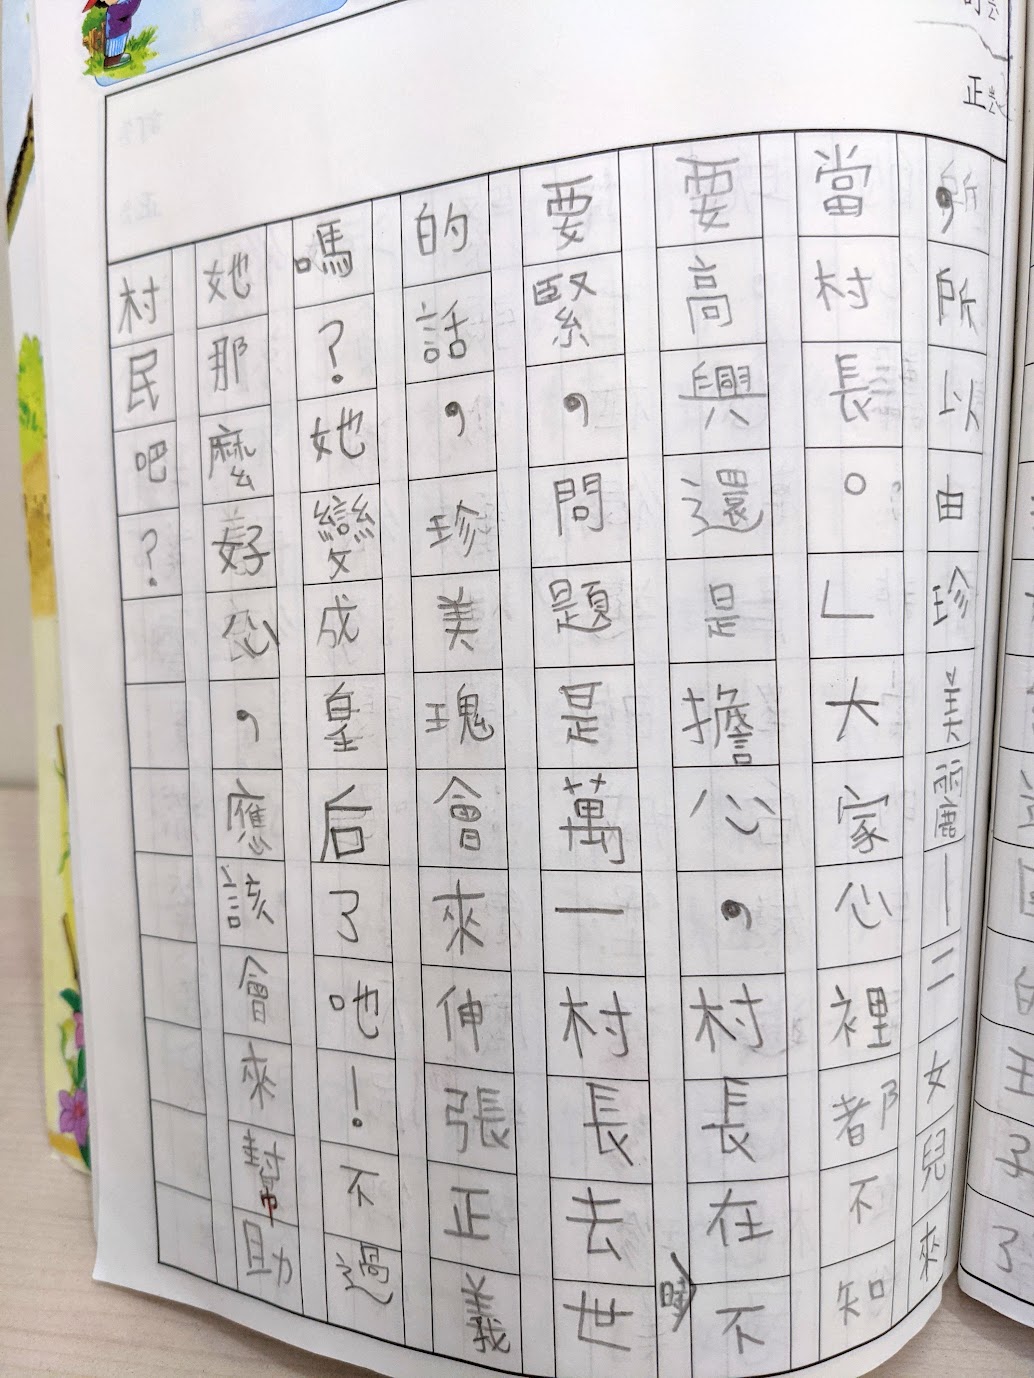 正
，所以由珍美麗—二女兒來
當村長。」大家心裡都不知
要高興還是擔心，村長在時不
要緊，問題是萬一村長去世
的話，珍美瑰會來伸張正義
嗎？她變成皇后了吔！不過
她那麼好心，應該會來幫助
村民吧？